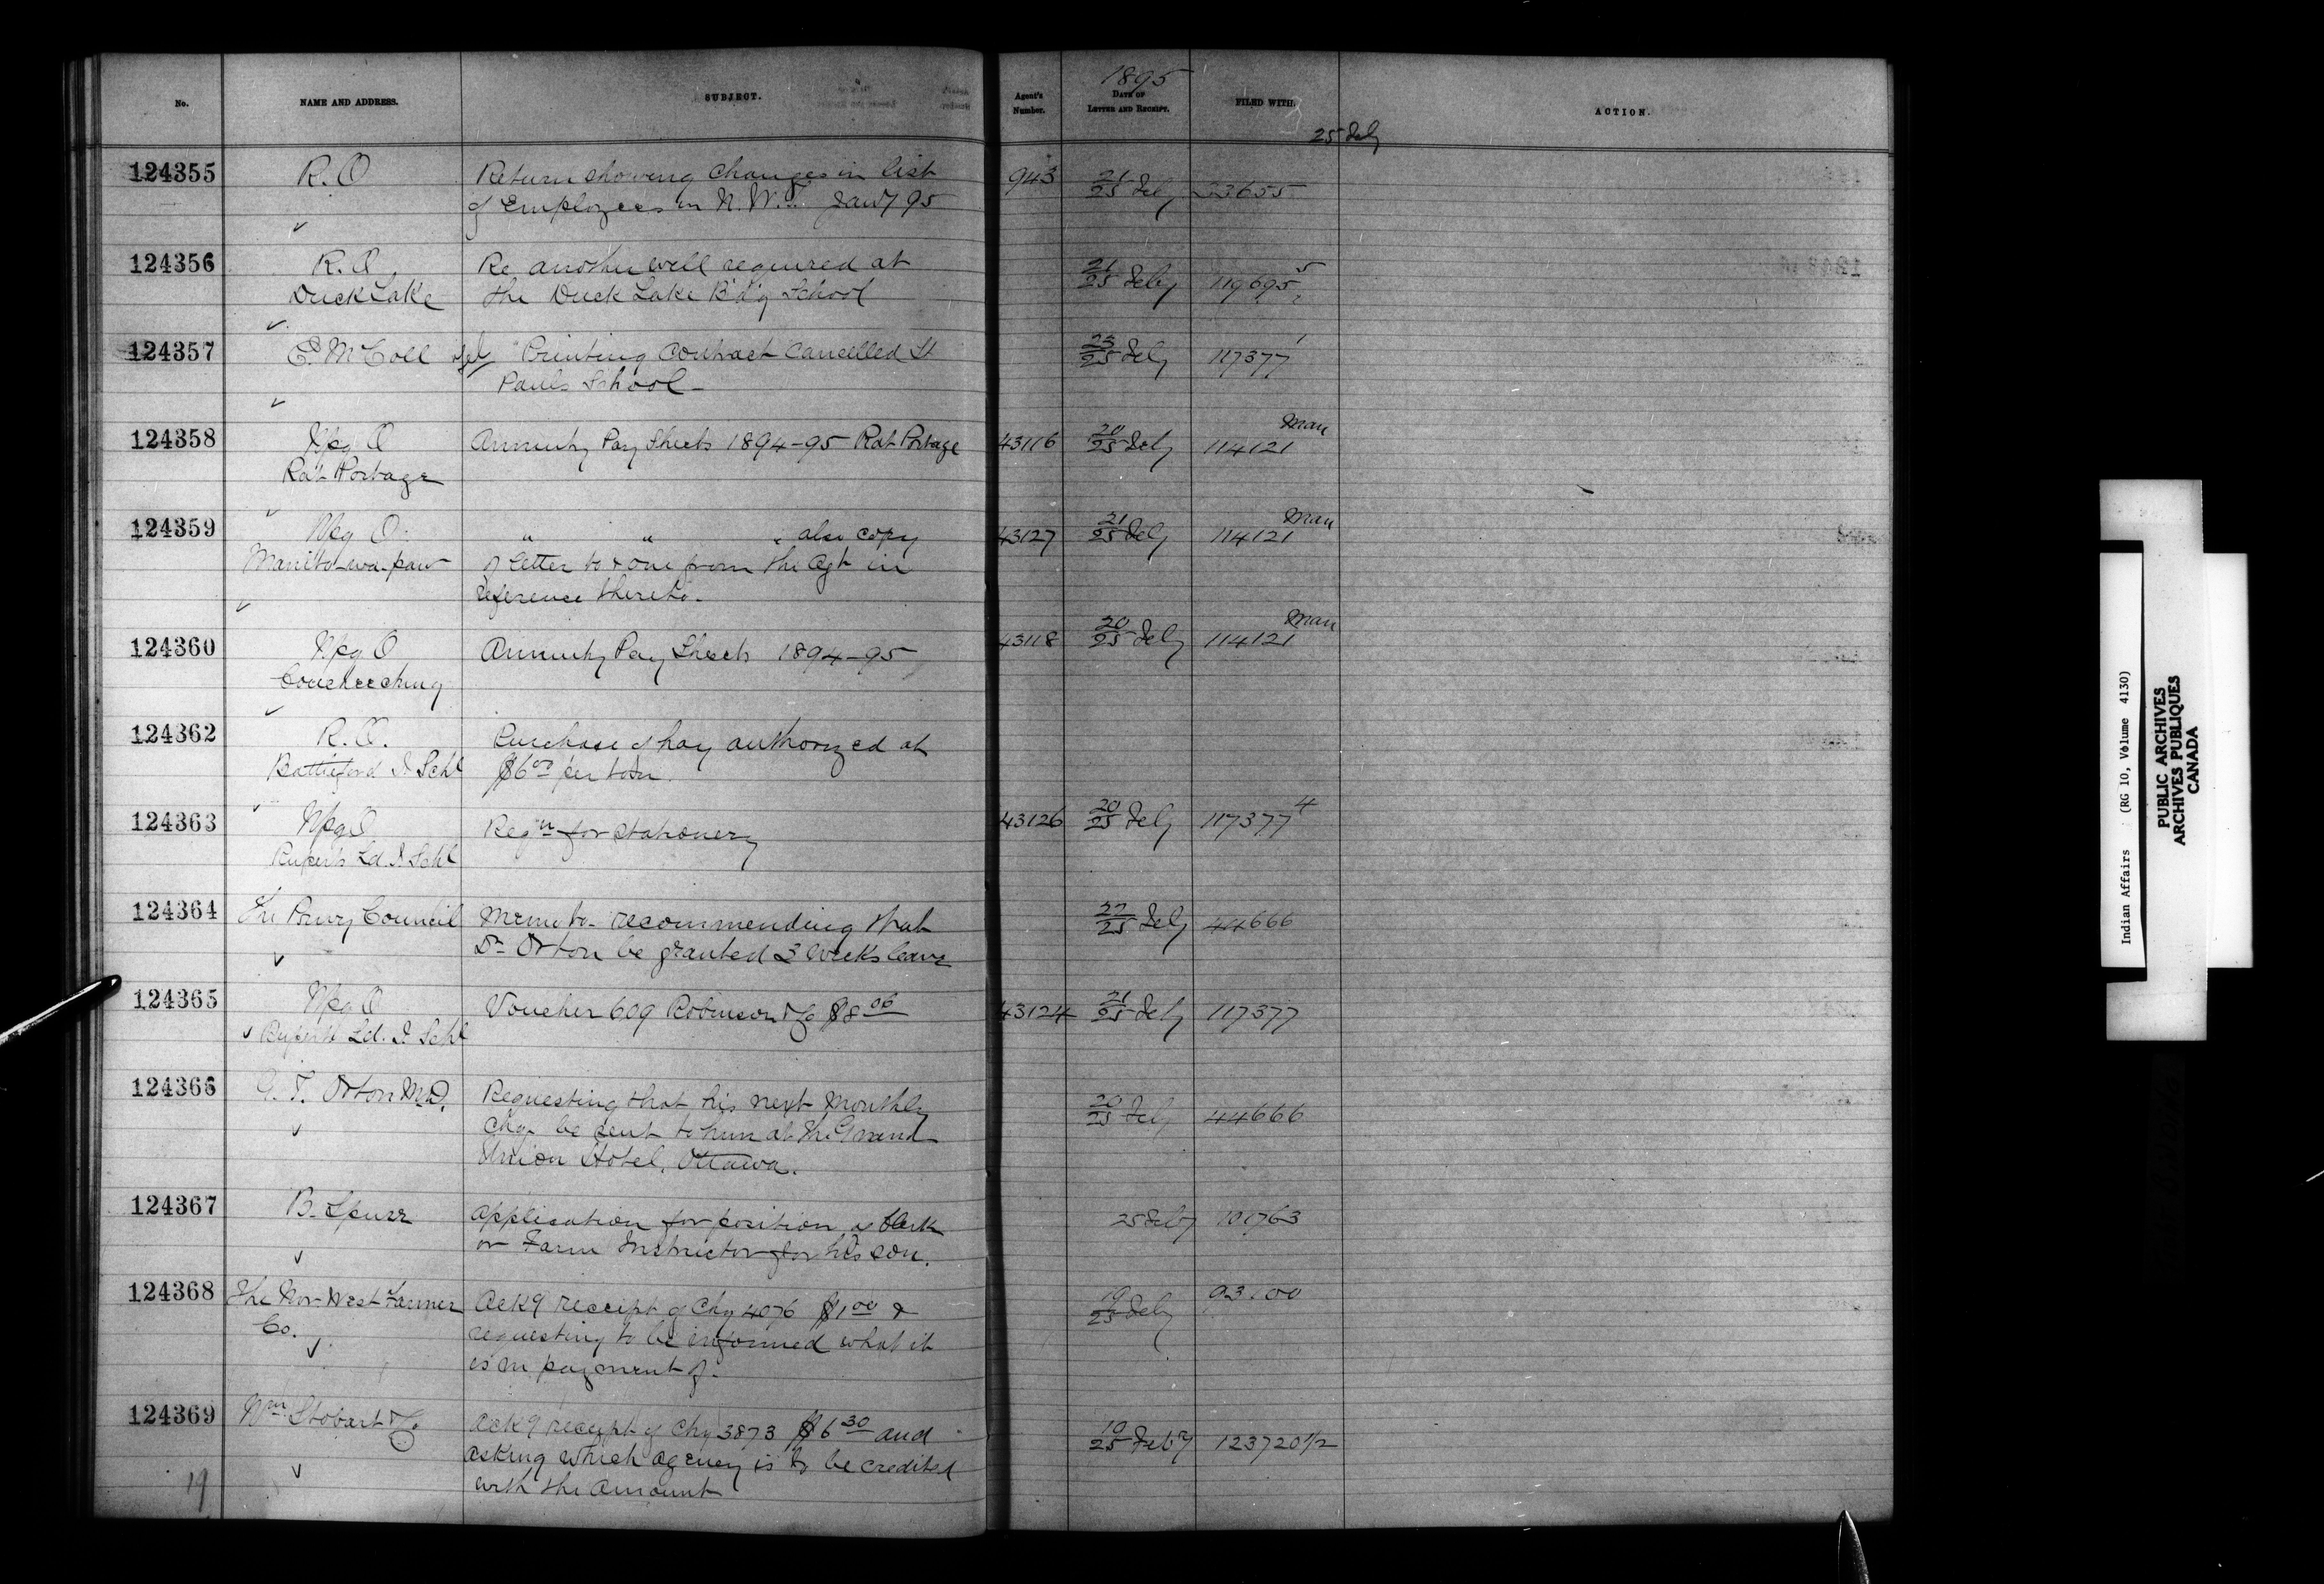 1895
No. NAME AND ADDRESS. SUBJECT. Agent's Number. DATE OF LETTER AND RECEIPT. FILED WITH. ACTION.
25 Feby
124355 R.O Return showing changes in list 943 21/25 Feby 23655
of Employees in N.W.T. Jany 95
124356 R.O, Re another well required at 21/25 Feby 119695
Duck Lake the Duck Lake B'd'g School
124357 E. McColl Printing contract cancelled St 23/25 Feby 117377 1
Pauls School -
124358 Wpg O Annuity Pay Sheets 1894-95 Rat Portage 43116 20/25 Feby 114121 Man
Rat Portage
124359 Wpg O. " " " also copy 43127 21/25 Feby 114121 Man
Manito-wa-paw of letter to & one from the Agt in
reference thereto.
124360 Wpg O Annuity Pay Sheets 1894-95 43118 20/25 Feby 114121 Man
Coucheeching
124362 R.O. Purchase of hay authorized at
Battleford I Schl $6 00 per ton.
124363 Wpg O Reqn for stationery 43126 20/25 Feby 117377 4
Ruperts Ld. I Schl
124364 The Privy Council Memo to- recommending that 22/25 Feby 44666
Dr Orton be granted 3 weeks leave
124365 Wpg O Voucher 609 Robinson & Co $8 06 43124 21/25 Feby 117377
Ruperts Ld. I Schl
124366 G. T. Orton M.D. Requesting that his next monthly 20/25 Feby 44666
Chq. be sent to him at the Grand
Union Hotel, Ottawa.
124367 B. Spurr Application for position as Clerk 25 Feby 101763
or Farm Instructor for his son.
124368 The Nor-West Farmer Ackg receipt of Chq 4076 $1 00 & 19/25 Feby
Co. requesting to be informed what it
is in payment of.
124369 Wm Stobart & Co Ackg receipt of Chq 3873 $6 30 and 19/25 Feby 123720 1/2
asking which agency is to be credited
with the amount
19
Indian Affairs (RG 10, Volume 4130)
PUBLIC ARCHIVES
ARCHIVES PUBLIQUES
CANADA